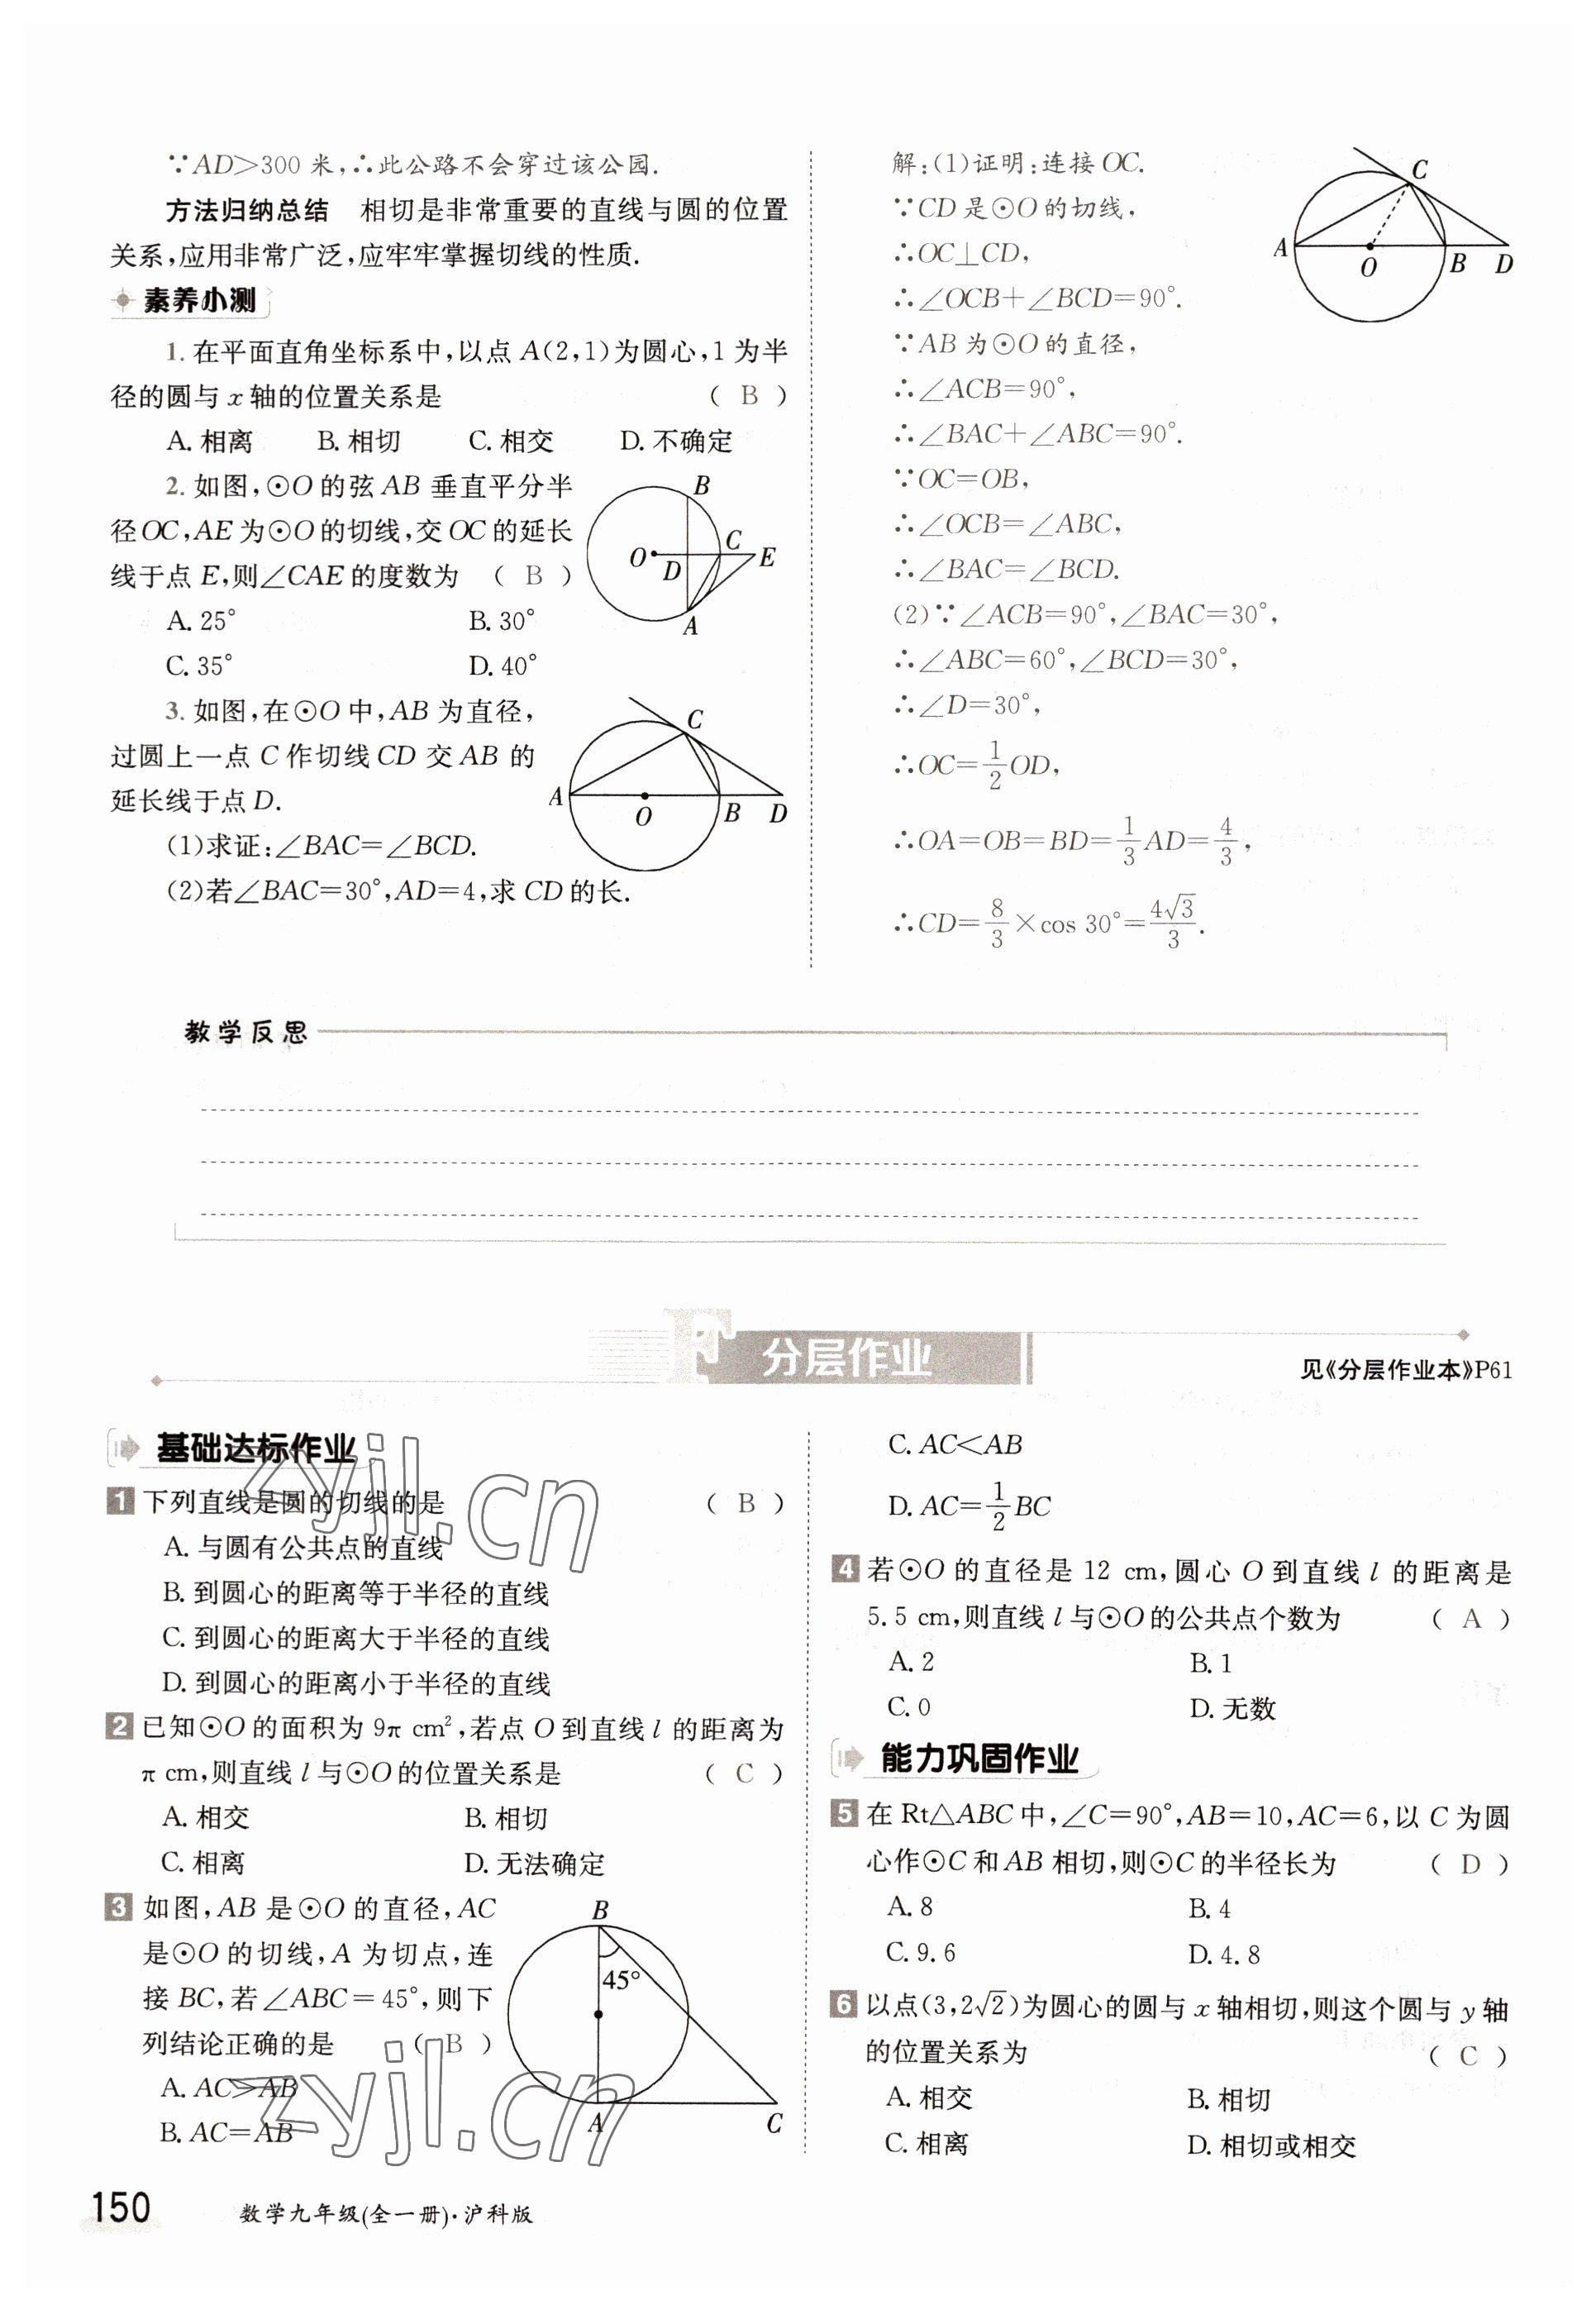 ∵AD>300 米,∴此公路不会穿过该公园.
方法归纳总结 相切是非常重要的直线与圆的位置
关系,应用非常广泛,应牢牢掌握切线的性质.
素养小测
1. 在平面直角坐标系中,以点 A(2,1)为圆心,1 为半
径的圆与 x 轴的位置关系是 ( B )
A. 相离 B. 相切 C. 相交 D. 不确定
2. 如图,⊙O 的弦 AB 垂直平分半
径 OC,AE 为⊙O 的切线,交 OC 的延长
线于点 E,则∠CAE 的度数为 ( B )
A. 25° B. 30°
C. 35° D. 40°
B
O
D
C
E
A
3. 如图,在⊙O 中,AB 为直径,
过圆上一点 C 作切线 CD 交 AB 的
延长线于点 D.
(1)求证:∠BAC=∠BCD.
(2)若∠BAC=30°,AD=4,求 CD 的长.
C
A
O
B
D
解:(1)证明:连接 OC.
∵CD 是⊙O 的切线,
∴OC⊥CD,
∴∠OCB+∠BCD=90°.
∵AB 为⊙O 的直径,
∴∠ACB=90°,
∴∠BAC+∠ABC=90°.
∵OC=OB,
∴∠OCB=∠ABC,
∴∠BAC=∠BCD.
(2)∵∠ACB=90°,∠BAC=30°,
∴∠ABC=60°,∠BCD=30°,
∴∠D=30°,
∴OC=1/2 OD,
∴OA=OB=BD=1/3 AD=4/3,
∴CD=8/3×cos 30°=4√3/3.
C
A
O
B
D
教学反思
F 分层作业
见《分层作业本》P61
基础达标作业
1 下列直线是圆的切线的是 ( B )
A. 与圆有公共点的直线
B. 到圆心的距离等于半径的直线
C. 到圆心的距离大于半径的直线
D. 到圆心的距离小于半径的直线
2 已知⊙O 的面积为 9π cm²,若点 O 到直线 l 的距离为
π cm,则直线 l 与⊙O 的位置关系是 ( C )
A. 相交 B. 相切
C. 相离 D. 无法确定
3 如图,AB 是⊙O 的直径,AC
是⊙O 的切线,A 为切点,连
接 BC,若∠ABC=45°,则下
列结论正确的是 ( B )
A. AC>AB
B. AC=AB
B
45°
A
C
C. AC<AB
D. AC=1/2 BC
4 若⊙O 的直径是 12 cm,圆心 O 到直线 l 的距离是
5.5 cm,则直线 l 与⊙O 的公共点个数为 ( A )
A. 2 B. 1
C. 0 D. 无数
能力巩固作业
5 在 Rt△ABC 中,∠C=90°,AB=10,AC=6,以 C 为圆
心作⊙C 和 AB 相切,则⊙C 的半径长为 ( D )
A. 8 B. 4
C. 9.6 D. 4.8
6 以点(3,2√2)为圆心的圆与 x 轴相切,则这个圆与 y 轴
的位置关系为 ( C )
A. 相交 B. 相切
C. 相离 D. 相切或相交
zyjl.cn
zyjl.cn
150 数学九年级(全一册)·沪科版